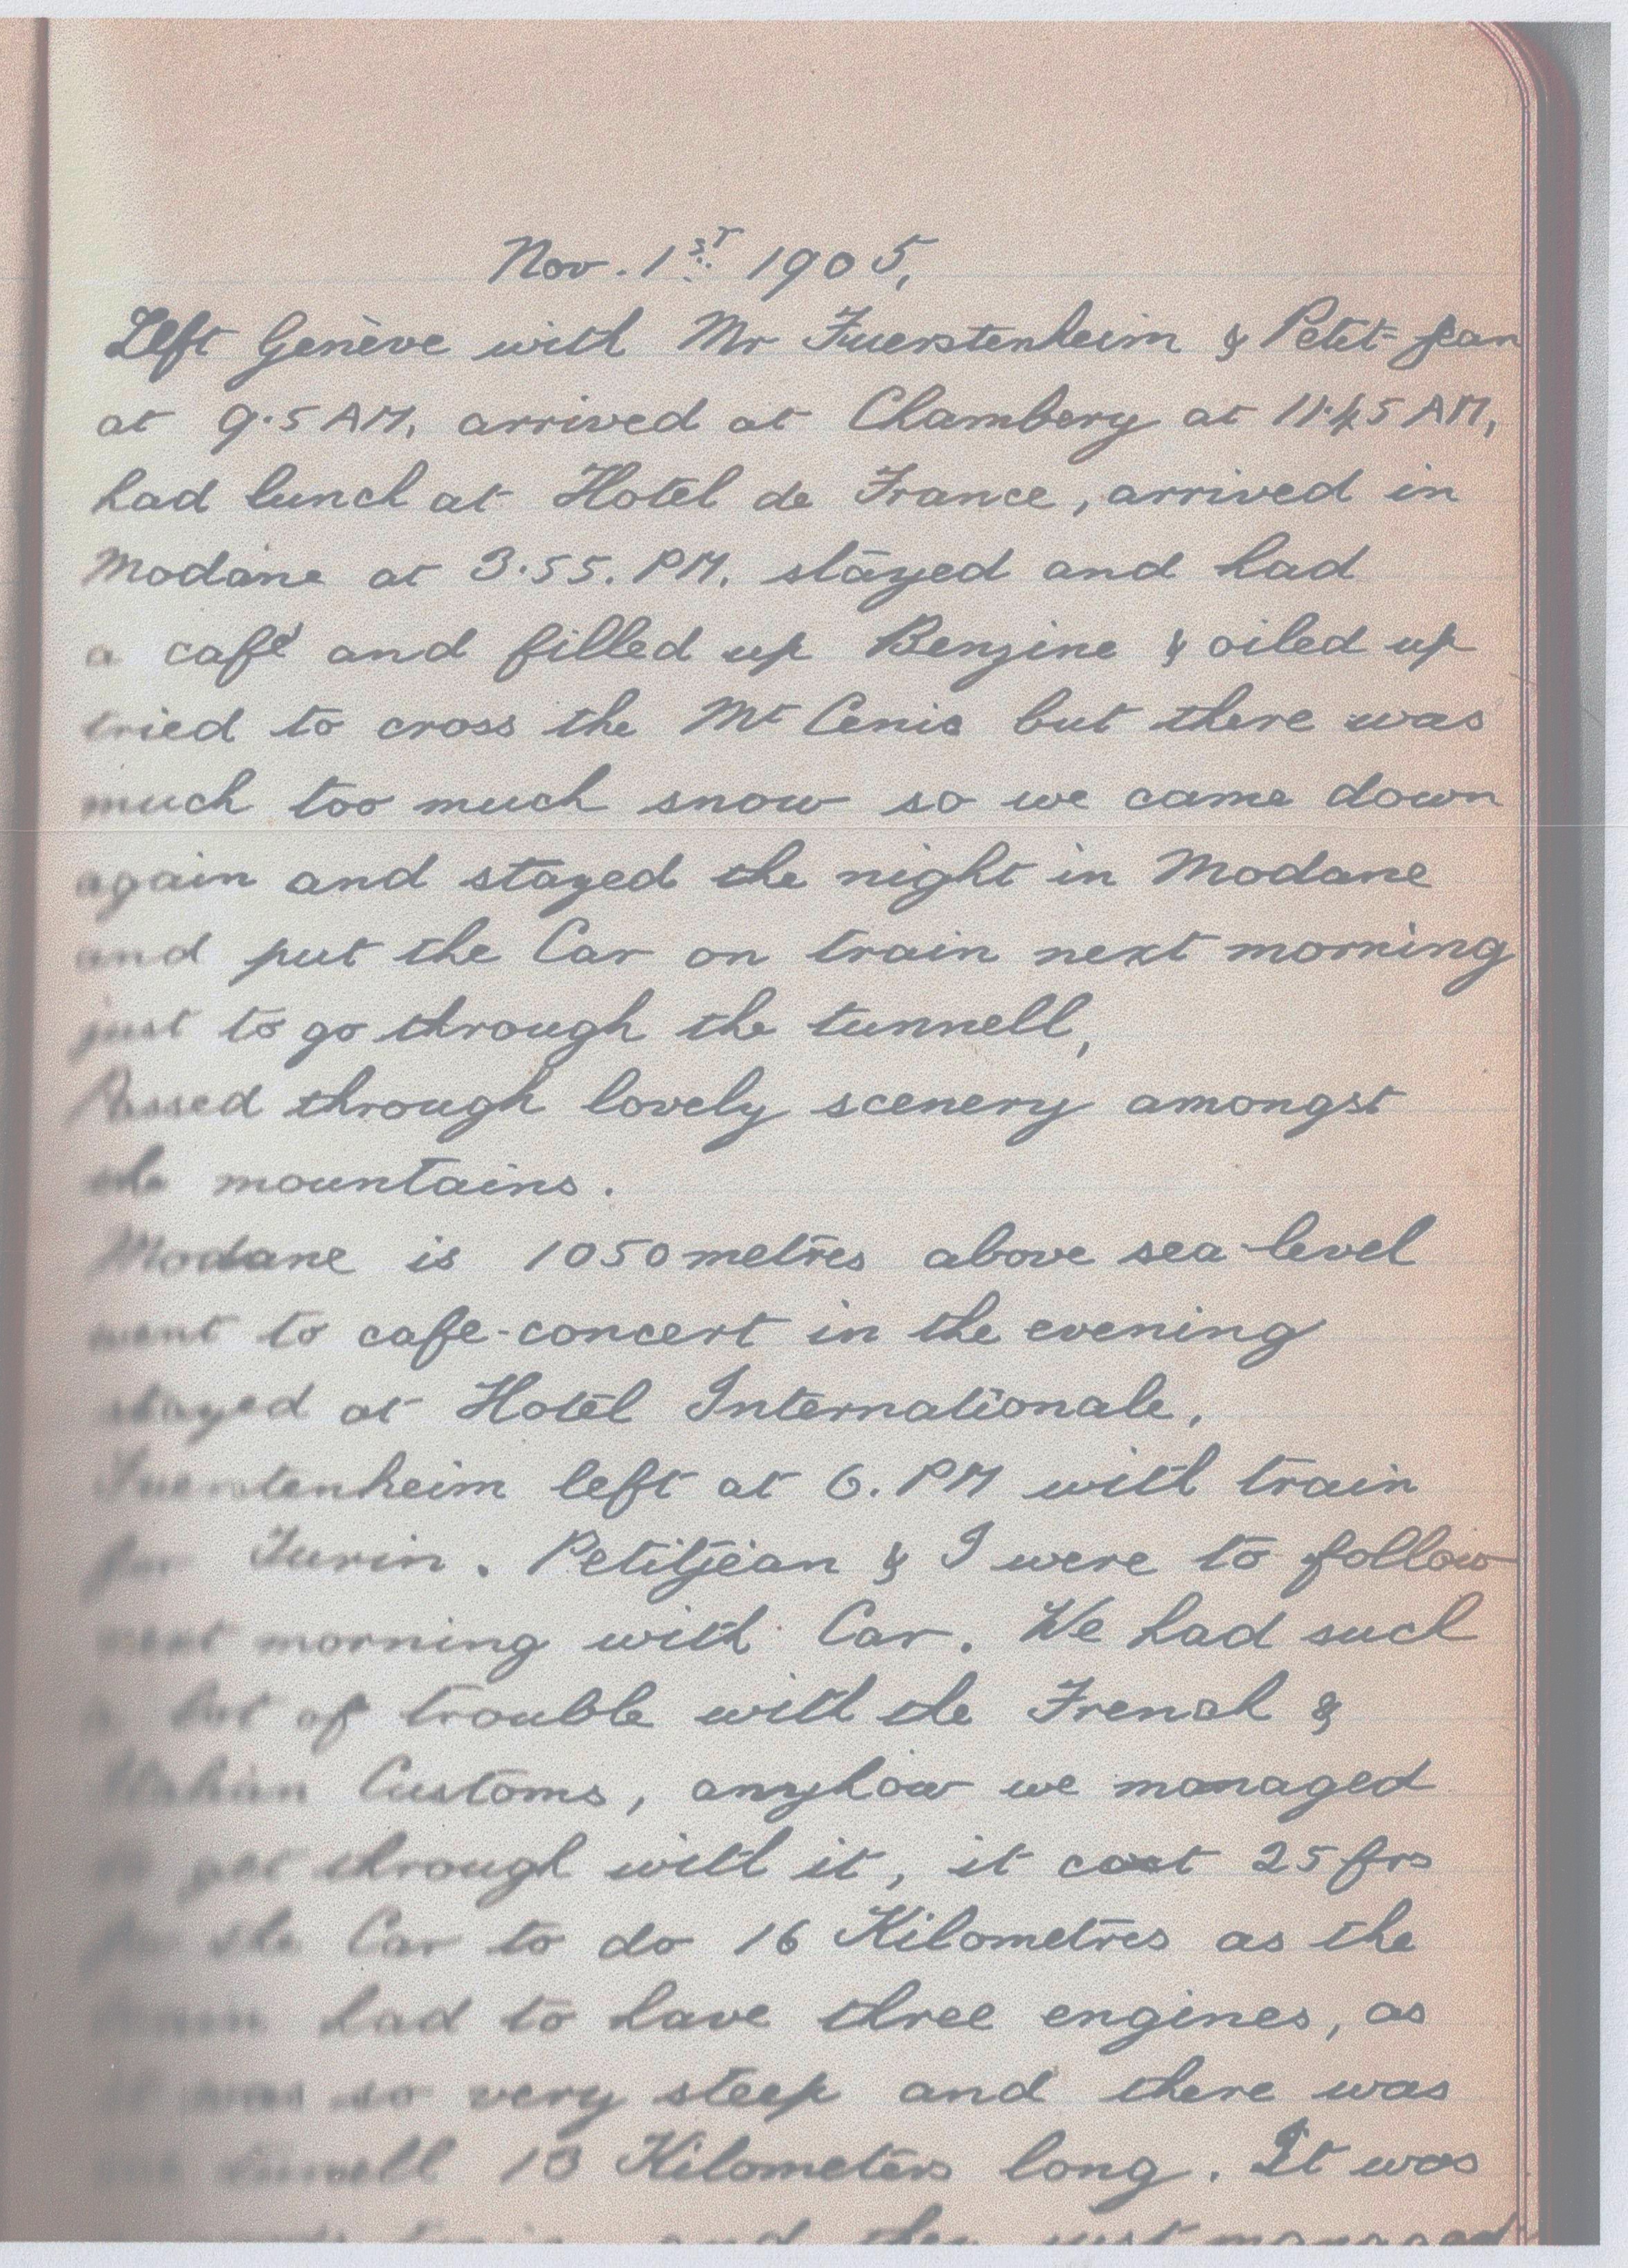 Nov. 1st 1905,
Left Genève with Mr Fuerstenheim & Petit-Jean
at 9.5 AM, arrived at Chambery at 11.45 AM,
had lunch at Hotel de France, arrived in
Modane at 3.55. PM. stayed and had
a café and filled up Benzine & oiled up
tried to cross the Mt Cenis but there was
much too much snow so we came down
again and stayed the night in Modane
and put the Car on train next morning
just to go through the tunnell,
Passed through lovely scenery amongst
the mountains.
Modane is 1050 metres above sea-level
went to cafe-concert in the evening
stayed at Hotel Internationale,
Fuerstenheim left at 6. PM with train
for Turin. Petitjean & I were to follow
next morning with Car. We had such
a lot of trouble with the French &
Italian Customs, anyhow we managed
to get through with it, it cost 25 frs
for the Car to do 16 Kilometres as the
train had to have three engines, as
it was so very steep and there was
one tunnell 13 Kilometers long. It was
train and they just managed